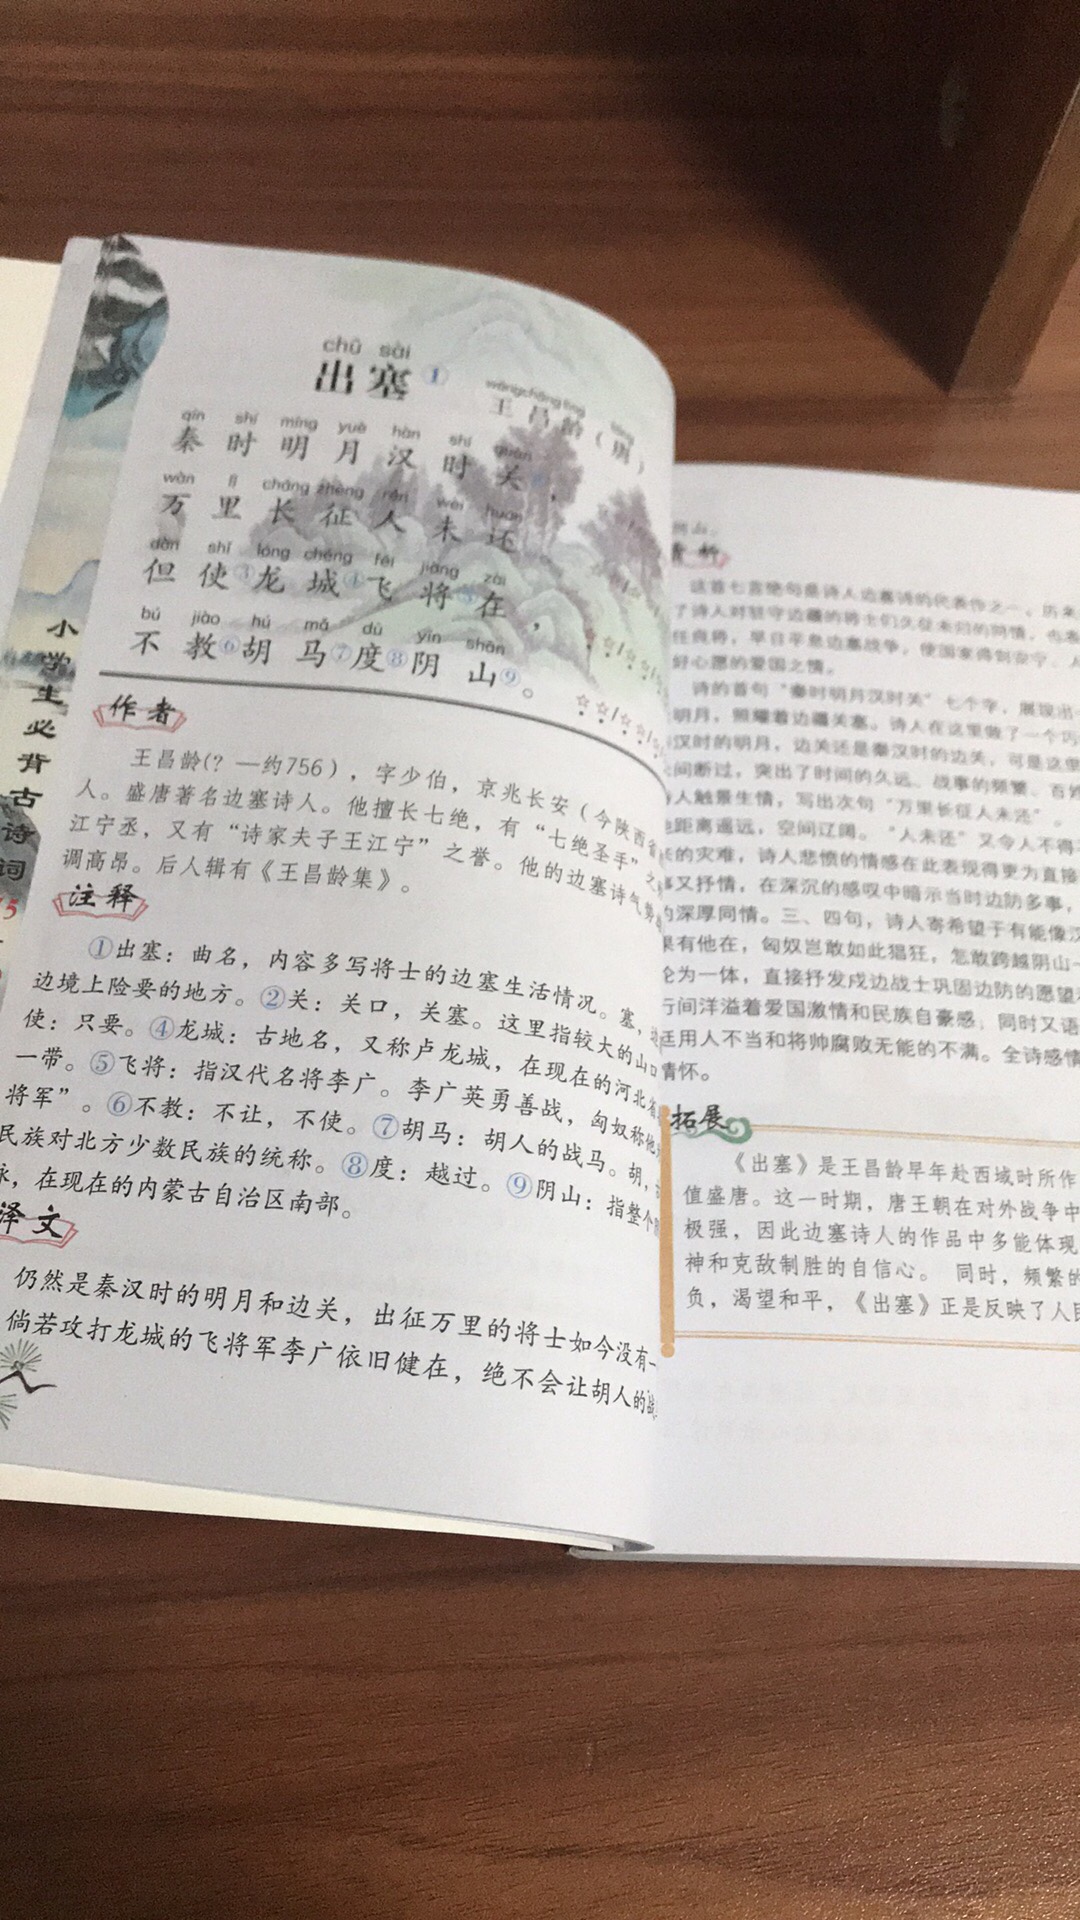 chū sài
出塞①
wāng chāng líng
王昌龄(唐)
qín shí míng yuè hàn shí guān
秦时明月汉时关②，
wàn lǐ cháng zhēng rén wèi huán
万里长征人未还。
dàn shǐ lóng chéng fēi jiàng zài
但使③龙城④飞将⑤在，
bú jiào hú mǎ dù yīn shān
不教⑥胡马⑦度⑧阴山⑨。
小学生必背古诗词
75
作者
王昌龄(?—约756)，字少伯，京兆长安（今陕西省
人。盛唐著名边塞诗人。他擅长七绝，有“七绝圣手”之
江宁丞，又有“诗家夫子王江宁”之誉。他的边塞诗气势
调高昂。后人辑有《王昌龄集》。
注释
①出塞：曲名，内容多写将士的边塞生活情况。塞，
边境上险要的地方。②关：关口，关塞。这里指较大的山口
使：只要。④龙城：古地名，又称卢龙城，在现在的河北省
一带。⑤飞将：指汉代名将李广。李广英勇善战，匈奴称他
将军”。⑥不教：不让，不使。⑦胡马：胡人的战马。胡，
民族对北方少数民族的统称。⑧度：越过。⑨阴山：指整个
脉，在现在的内蒙古自治区南部。
译文
仍然是秦汉时的明月和边关，出征万里的将士如今没有一
倘若攻打龙城的飞将军李广依旧健在，绝不会让胡人的战
赏析
这首七言绝句是诗人边塞诗的代表作之一，历来
了诗人对驻守边疆的将士们久征未归的同情，也表
任良将，早日平息边塞战争，使国家得到安宁，人
好心愿的爱国之情。
诗的首句“秦时明月汉时关”七个字，展现出一
明月，照耀着边疆关塞。诗人在这里做了一个巧
汉时的明月，边关还是秦汉时的边关，可是这里
间断过，突出了时间的久远、战事的频繁、百姓
人触景生情，写出次句“万里长征人未还”。
距离遥远，空间辽阔。“人未还”又令人不得
的灾难，诗人悲愤的情感在此表现得更为直接
事又抒情，在深沉的感叹中暗示当时边防多事，
的深厚同情。三、四句，诗人寄希望于有能像汉
果有他在，匈奴岂敢如此猖狂，怎敢跨越阴山一
论为一体，直接抒发戍边战士巩固边防的愿望
行间洋溢着爱国激情和民族自豪感，同时又语
廷用人不当和将帅腐败无能的不满。全诗感情
情怀。
拓展
《出塞》是王昌龄早年赴西域时所作
值盛唐。这一时期，唐王朝在对外战争中
极强，因此边塞诗人的作品中多能体现
神和克敌制胜的自信心。 同时，频繁的
负，渴望和平，《出塞》正是反映了人民